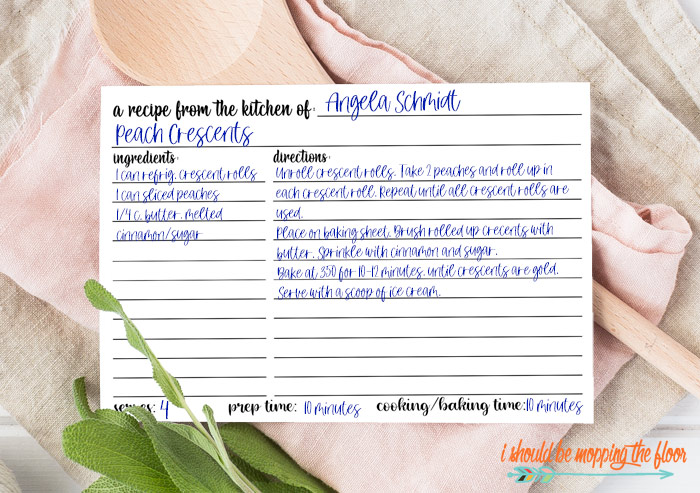 a recipe from the kitchen of: Angela Schmidt
Peach Crescents
ingredients:
1 can refrig. crescent rolls
1 can sliced peaches
1/4 c. butter, melted
cinnamon/sugar
directions:
Unroll crescent rolls. Take 2 peaches and roll up in
each crescent roll. Repeat until all crescent rolls are
used.
Place on baking sheet. Brush rolled up crecents with
butter. Sprinkle with cinnamon and sugar.
Bake at 350 for 10-12 minutes, until crescents are gold.
Serve with a scoop of ice cream.
serves: 4 prep time: 10 minutes cooking/baking time: 10 minutes
i should be mopping the floor